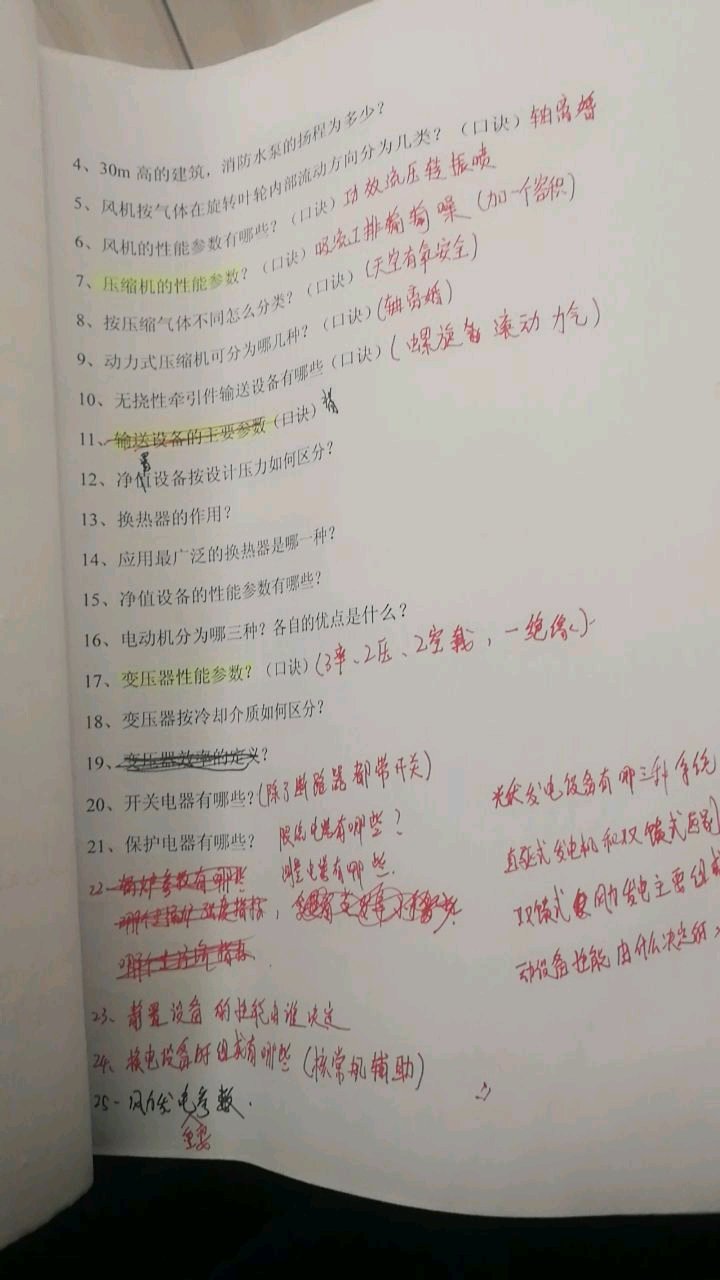 4、30m 高的建筑，消防水泵的扬程为多少？
5、风机按气体在旋转叶轮内部流动方向分为几类？（口诀）轴离婚
6、风机的性能参数有哪些？（口诀）功效流压转振喷
7、压缩机的性能参数？（口诀）吸流工排输输噪（加一个容积）
8、按压缩气体不同怎么分类？（口诀）（天空有氧安全）
9、动力式压缩机可分为哪几种？（口诀）（轴离婚）
10、无挠性牵引件输送设备有哪些（口诀）（螺旋 滚动 力气）
11、输送设备的主要参数（口诀）
12、净值设备按设计压力如何区分？
置
13、换热器的作用？
14、应用最广泛的换热器是哪一种？
15、净值设备的性能参数有哪些？
16、电动机分为哪三种？各自的优点是什么？
17、变压器性能参数？（口诀）（3率、2压、2空载，一绝缘）
18、变压器按冷却介质如何区分？
19、变压器效率的定义？
20、开关电器有哪些？（除了断路器都带开关）
21、保护电器有哪些？ 限流电器有哪些？
测量电器有哪些.
光伏发电设备有哪三种系统
直驱式发电机和双馈式区别
双馈式风力发电主要组成
动设备性能由什么决定的
22、锅炉参数有哪些
23、静置设备的性能由谁决定
24、核电设备的组成有哪些（核常机辅助）
25、风力发电参数.
重要